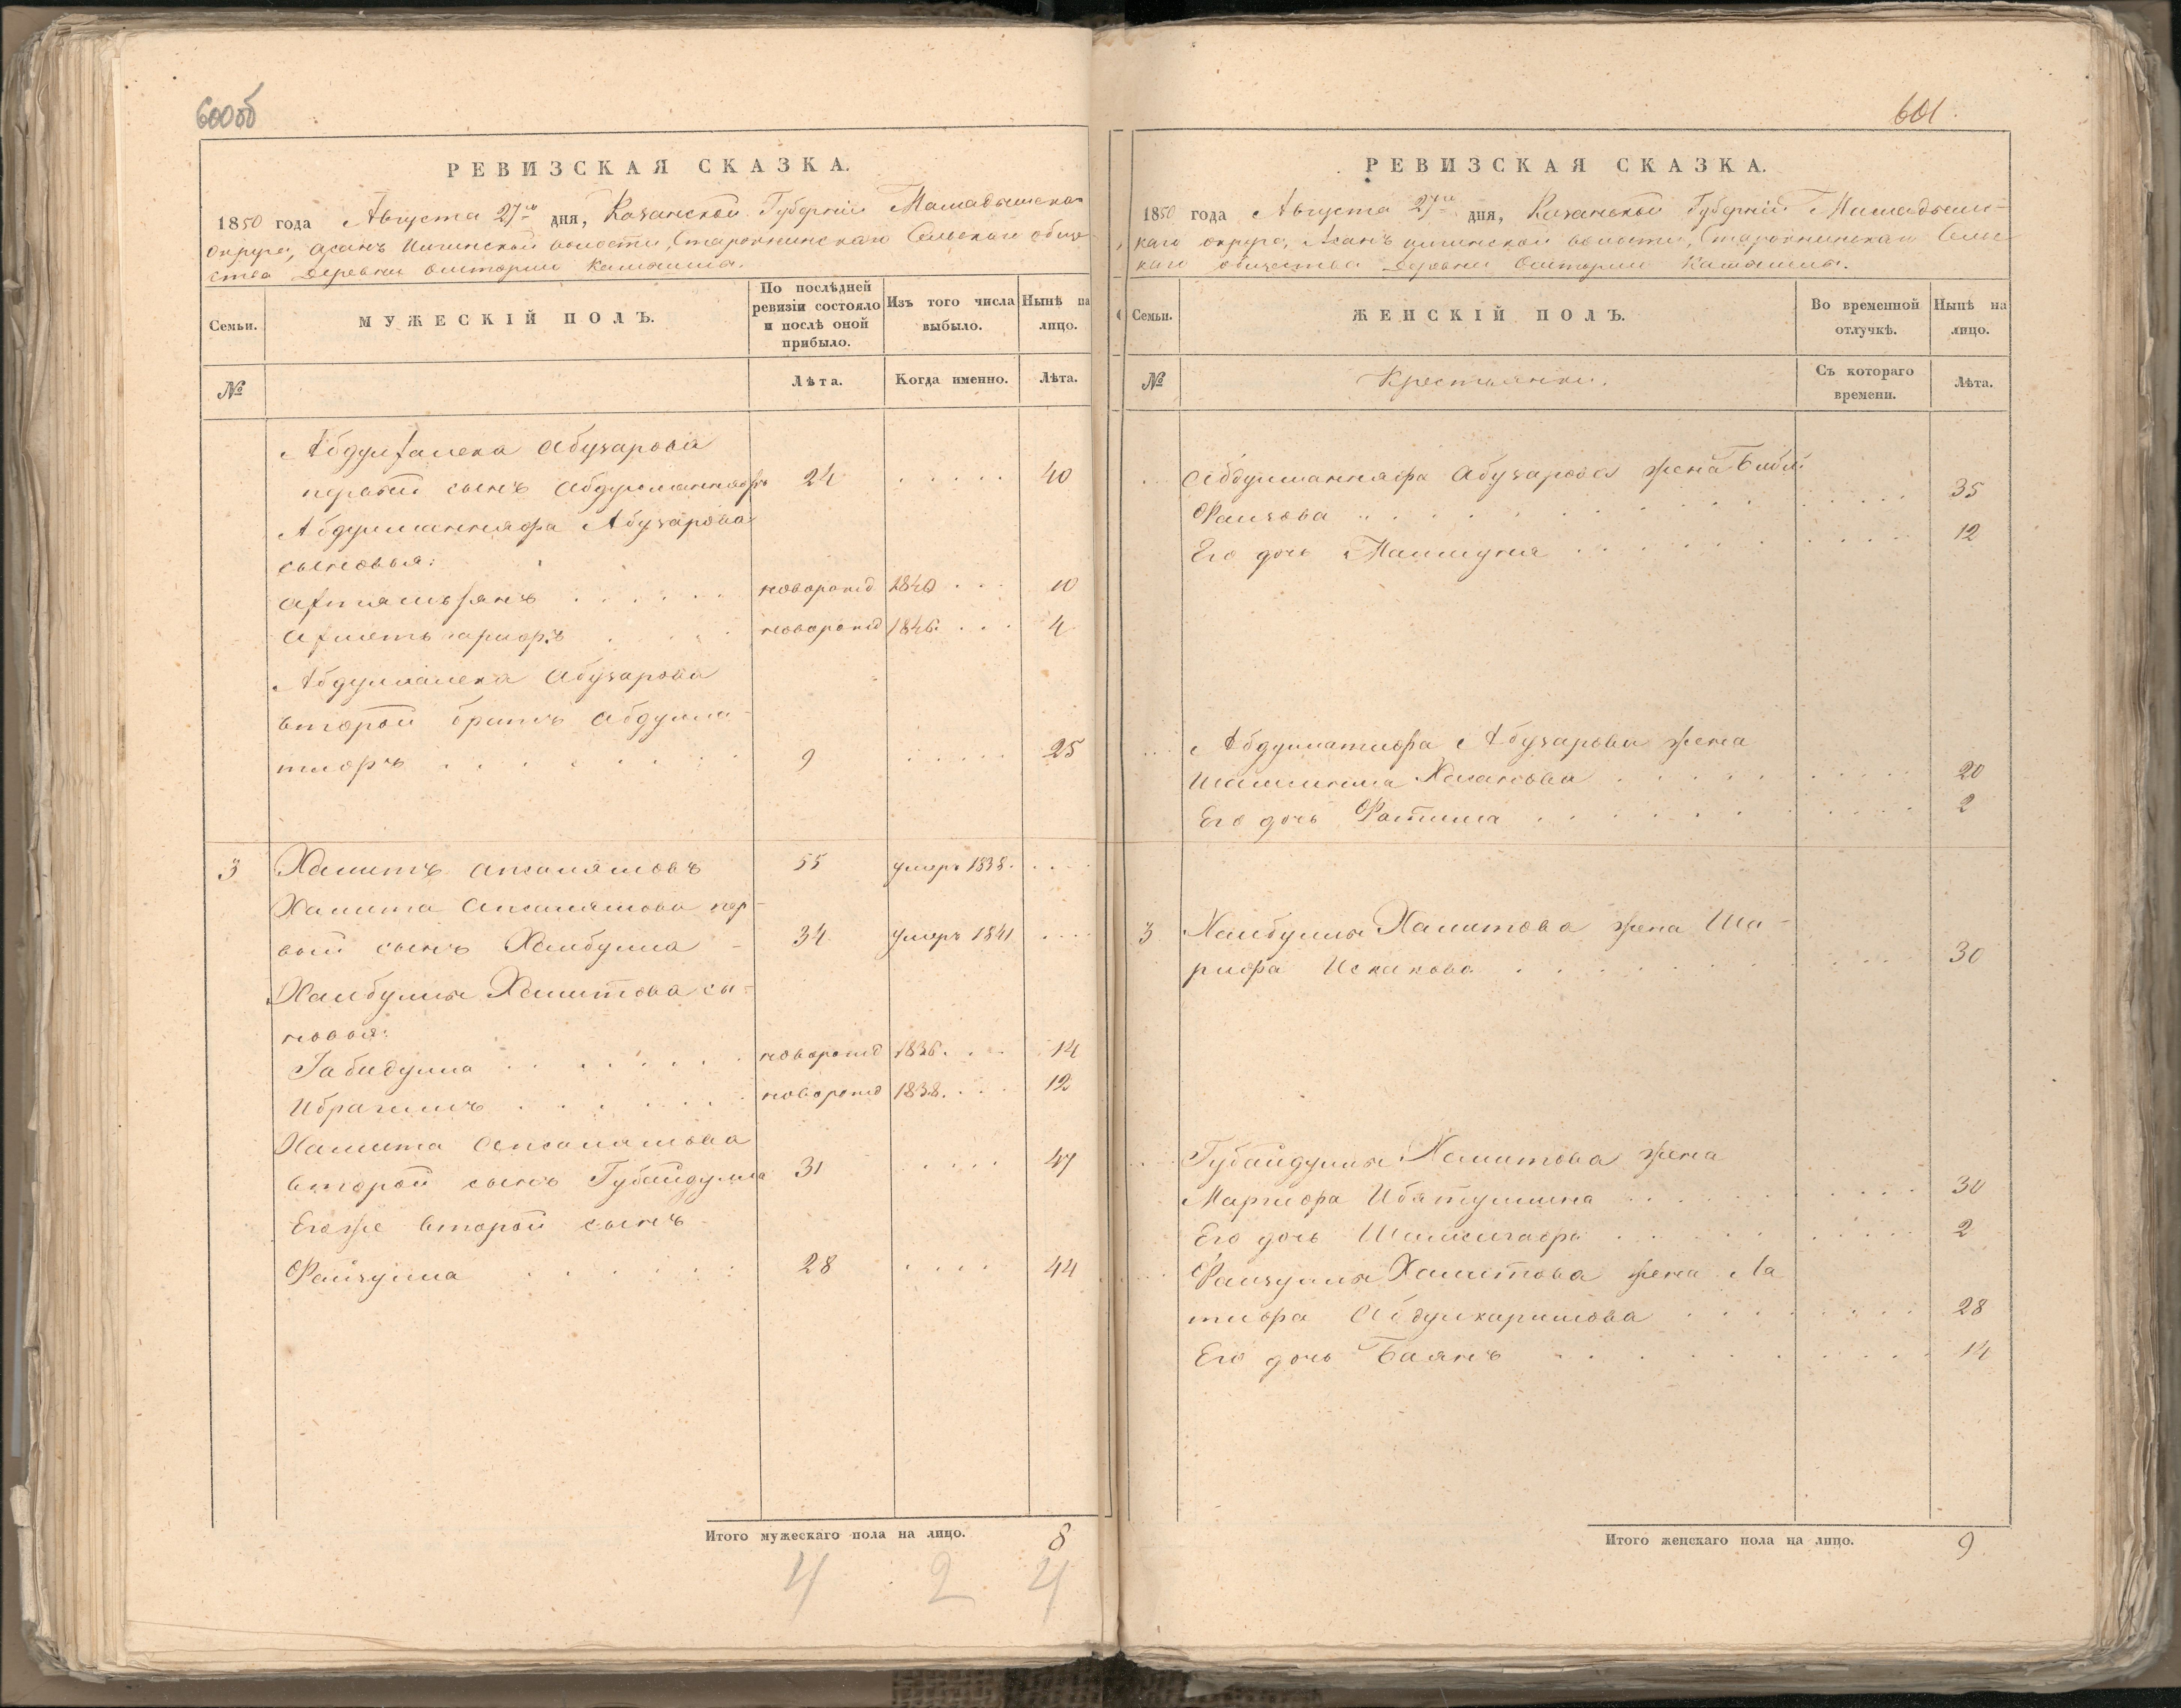 600об
РЕВИЗСКАЯ СКАЗКА.
1850 года Августа 27го дня, Казанской Губернiи Мамадышска
округа, Асанъ Илгинской волости, Сельскаго обще-
ства Деревни
Семьи.
МУЖЕСКІЙ ПОЛЪ.
По послѣдней
ревизіи состояло
и послѣ оной
прибыло.
Изъ того числа
выбыло.
Нынѣ на
лицо.
№
Лѣта.
Когда именно.
Лѣта.
Абузарова
первый сынъ Абдулманнафъ 24 . . . . . 40
Абдулманнафа Абузарова
сыновья:
Ахтямьянъ . . . . . новорожд 1840 . . . 10
Ахметьгарифъ . . . . новорожд 1846. . . . 4
Абузарова
второй братъ Абдулла-
тифъ . . . . . . . 9 . . . . . 25
3 Хамитъ Апсалямовъ 55 умеръ 1838. . . . .
Хамита Апсалямова пер-
вый сынъ Хайбулла - 34 умеръ 1841 . . . .
Хайбуллы Хамитова сы-
новья:
Габидулла . . . . . . новорожд 1836. . . . 14
Ибрагимъ . . . . . . новорожд 1838. . . . 12
Хамита Апсалямова
второй сынъ Губайдулла 31 . . . . 47
Егоже второй сынъ
Файзулла . . . . . . 28 . . . . 44
Итого мужескаго пола на лицо. 8
4 2 4
601.
РЕВИЗСКАЯ СКАЗКА.
1850 года Августа 27го дня, Казанской Губернiи Мамадышс-
каго округа, Асанъ илгинской волости, Сель-
каго общества Деревни
Семьи.
ЖЕНСКІЙ ПОЛЪ.
Во временной
отлучкѣ.
Нынѣ на
лицо.
№
Крестьянки.
Съ котораго
времени.
Лѣта.
Абдулманнафа Абузарова жена Биби
Фаизова . . . . . . . . . 35
Его дочь . . . . . . . . . 12
Абдуллатифа Абузарова жена
Хасанова . . . . . . . . 20
Его дочь Фатима . . . . . . . . 2
3 Хайбуллы Хамитова жена Ша-
рифа Искакова . . . . . . . . . 30
Губайдуллы Хамитова жена
Марифа Ибятуллина . . . . . . . . 30
Его дочь . . . . . . . . 2
Файзуллы Хамитова жена Ла
тифа Абдулкаримова . . . . . . . 28
Его дочь Баянъ . . . . . . . . 14
Итого женскаго пола на лицо. 9